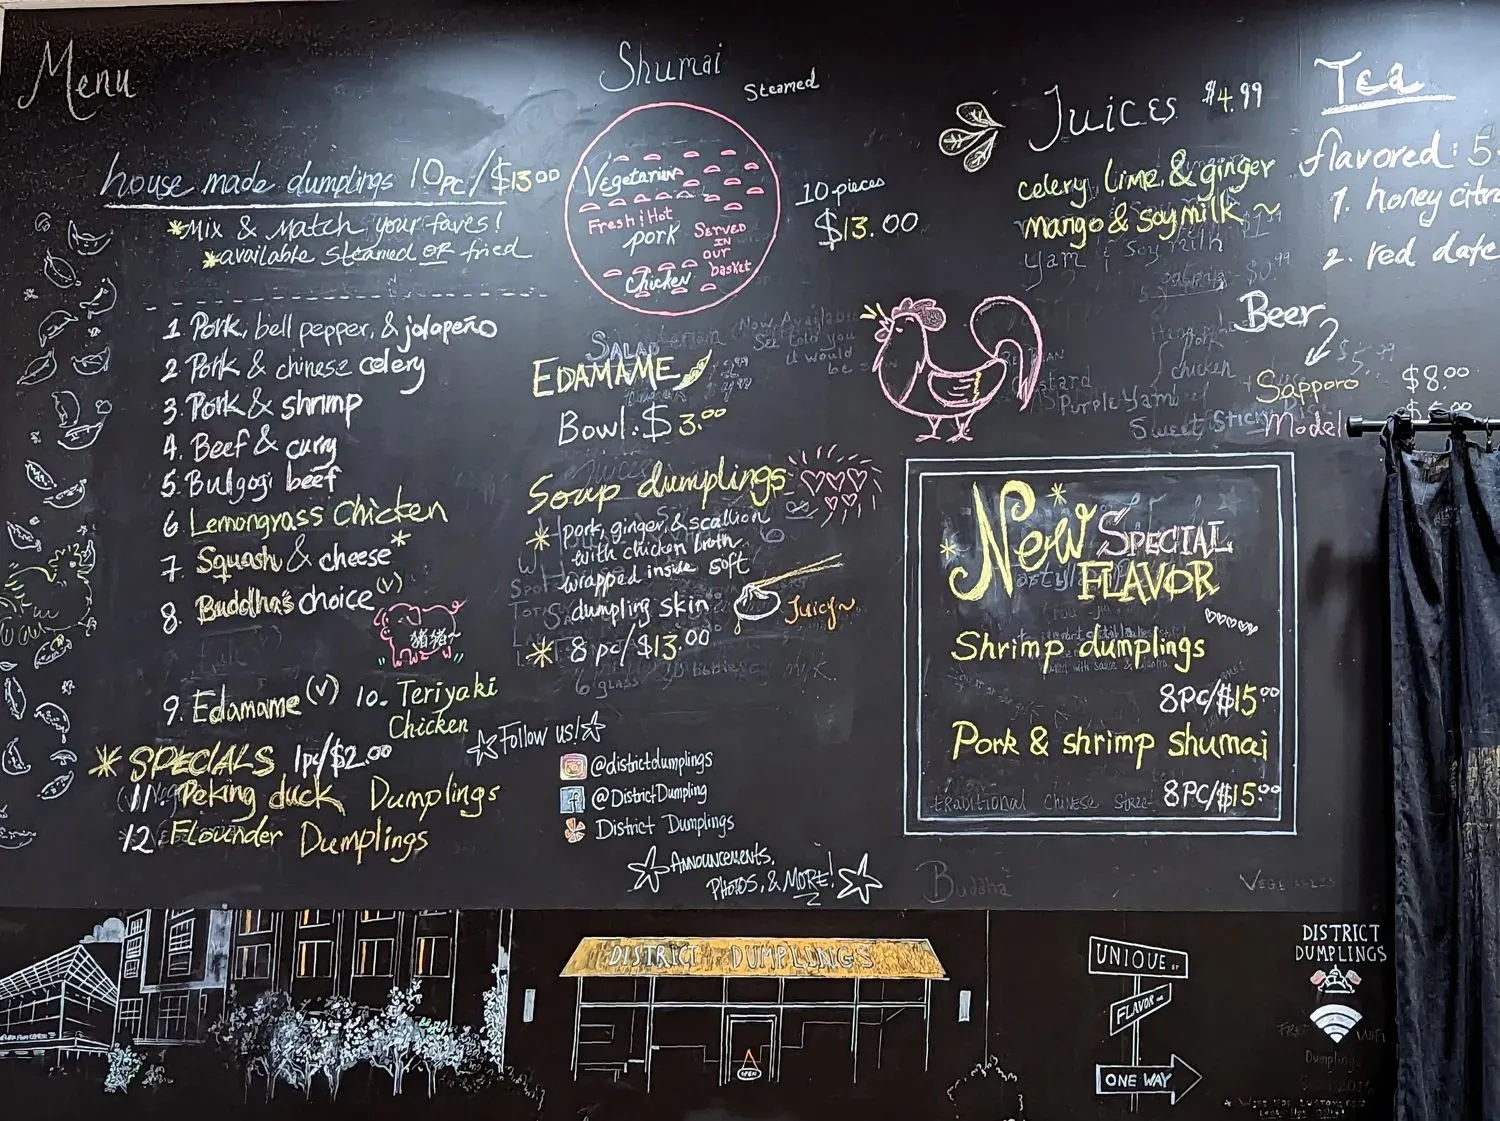 Menu
house made dumplings 10pc/$13.00
*Mix & Match your faves!
*available steamed OR fried
1 Pork, bell pepper, & jalapeño
2 Pork & chinese celery
3 Pork & shrimp
4. Beef & curry
5. Bulgogi beef
6 Lemongrass Chicken
7. Squash & cheese*
8. Buddha's choice (v)
猪猪~
9. Edamame (v) 10. Teriyaki
Chicken
* SPECIALS 1pc/$2.00
11. Peking duck Dumplings
12 Flounder Dumplings
Shumai
Steamed
Vegetarian
Fresh & Hot
pork
SERVED
IN
OUR
basket
Chicken
10 pieces
$13.00
SALAD
EDAMAME
Bowl: $3.00
Now Available
See told you
it would
be
Soup dumplings
* pork, ginger, & scallion
with chicken broth
wrapped inside soft
dumpling skin
Juicy~
* 8 pc/$13.00
Follow us!
@districtdumplings
@DistrictDumpling
District Dumplings
ANNOUNCEMENTS,
PHOTOS, & MORE!
JUICES $4.99
celery, lime, & ginger
mango & soymilk ~
Yam & Soy milk
Tea
flavored: 5.
1. honey citr
2. red date
Beer
Sapporo $8.00
Model
chicken
Purple Yam
Sweet
New SPECIAL
FLAVOR
Shrimp dumplings
8PC/$15.00
Pork & shrimp shumai
8PC/$15.00
TRADITIONAL CHINESE STREET
Buddha
DISTRICT DUMPLINGS
OPEN
UNIQUE ST
FLAVOR
ONE WAY
DISTRICT
DUMPLINGS
FREE WiFi
Dumplings